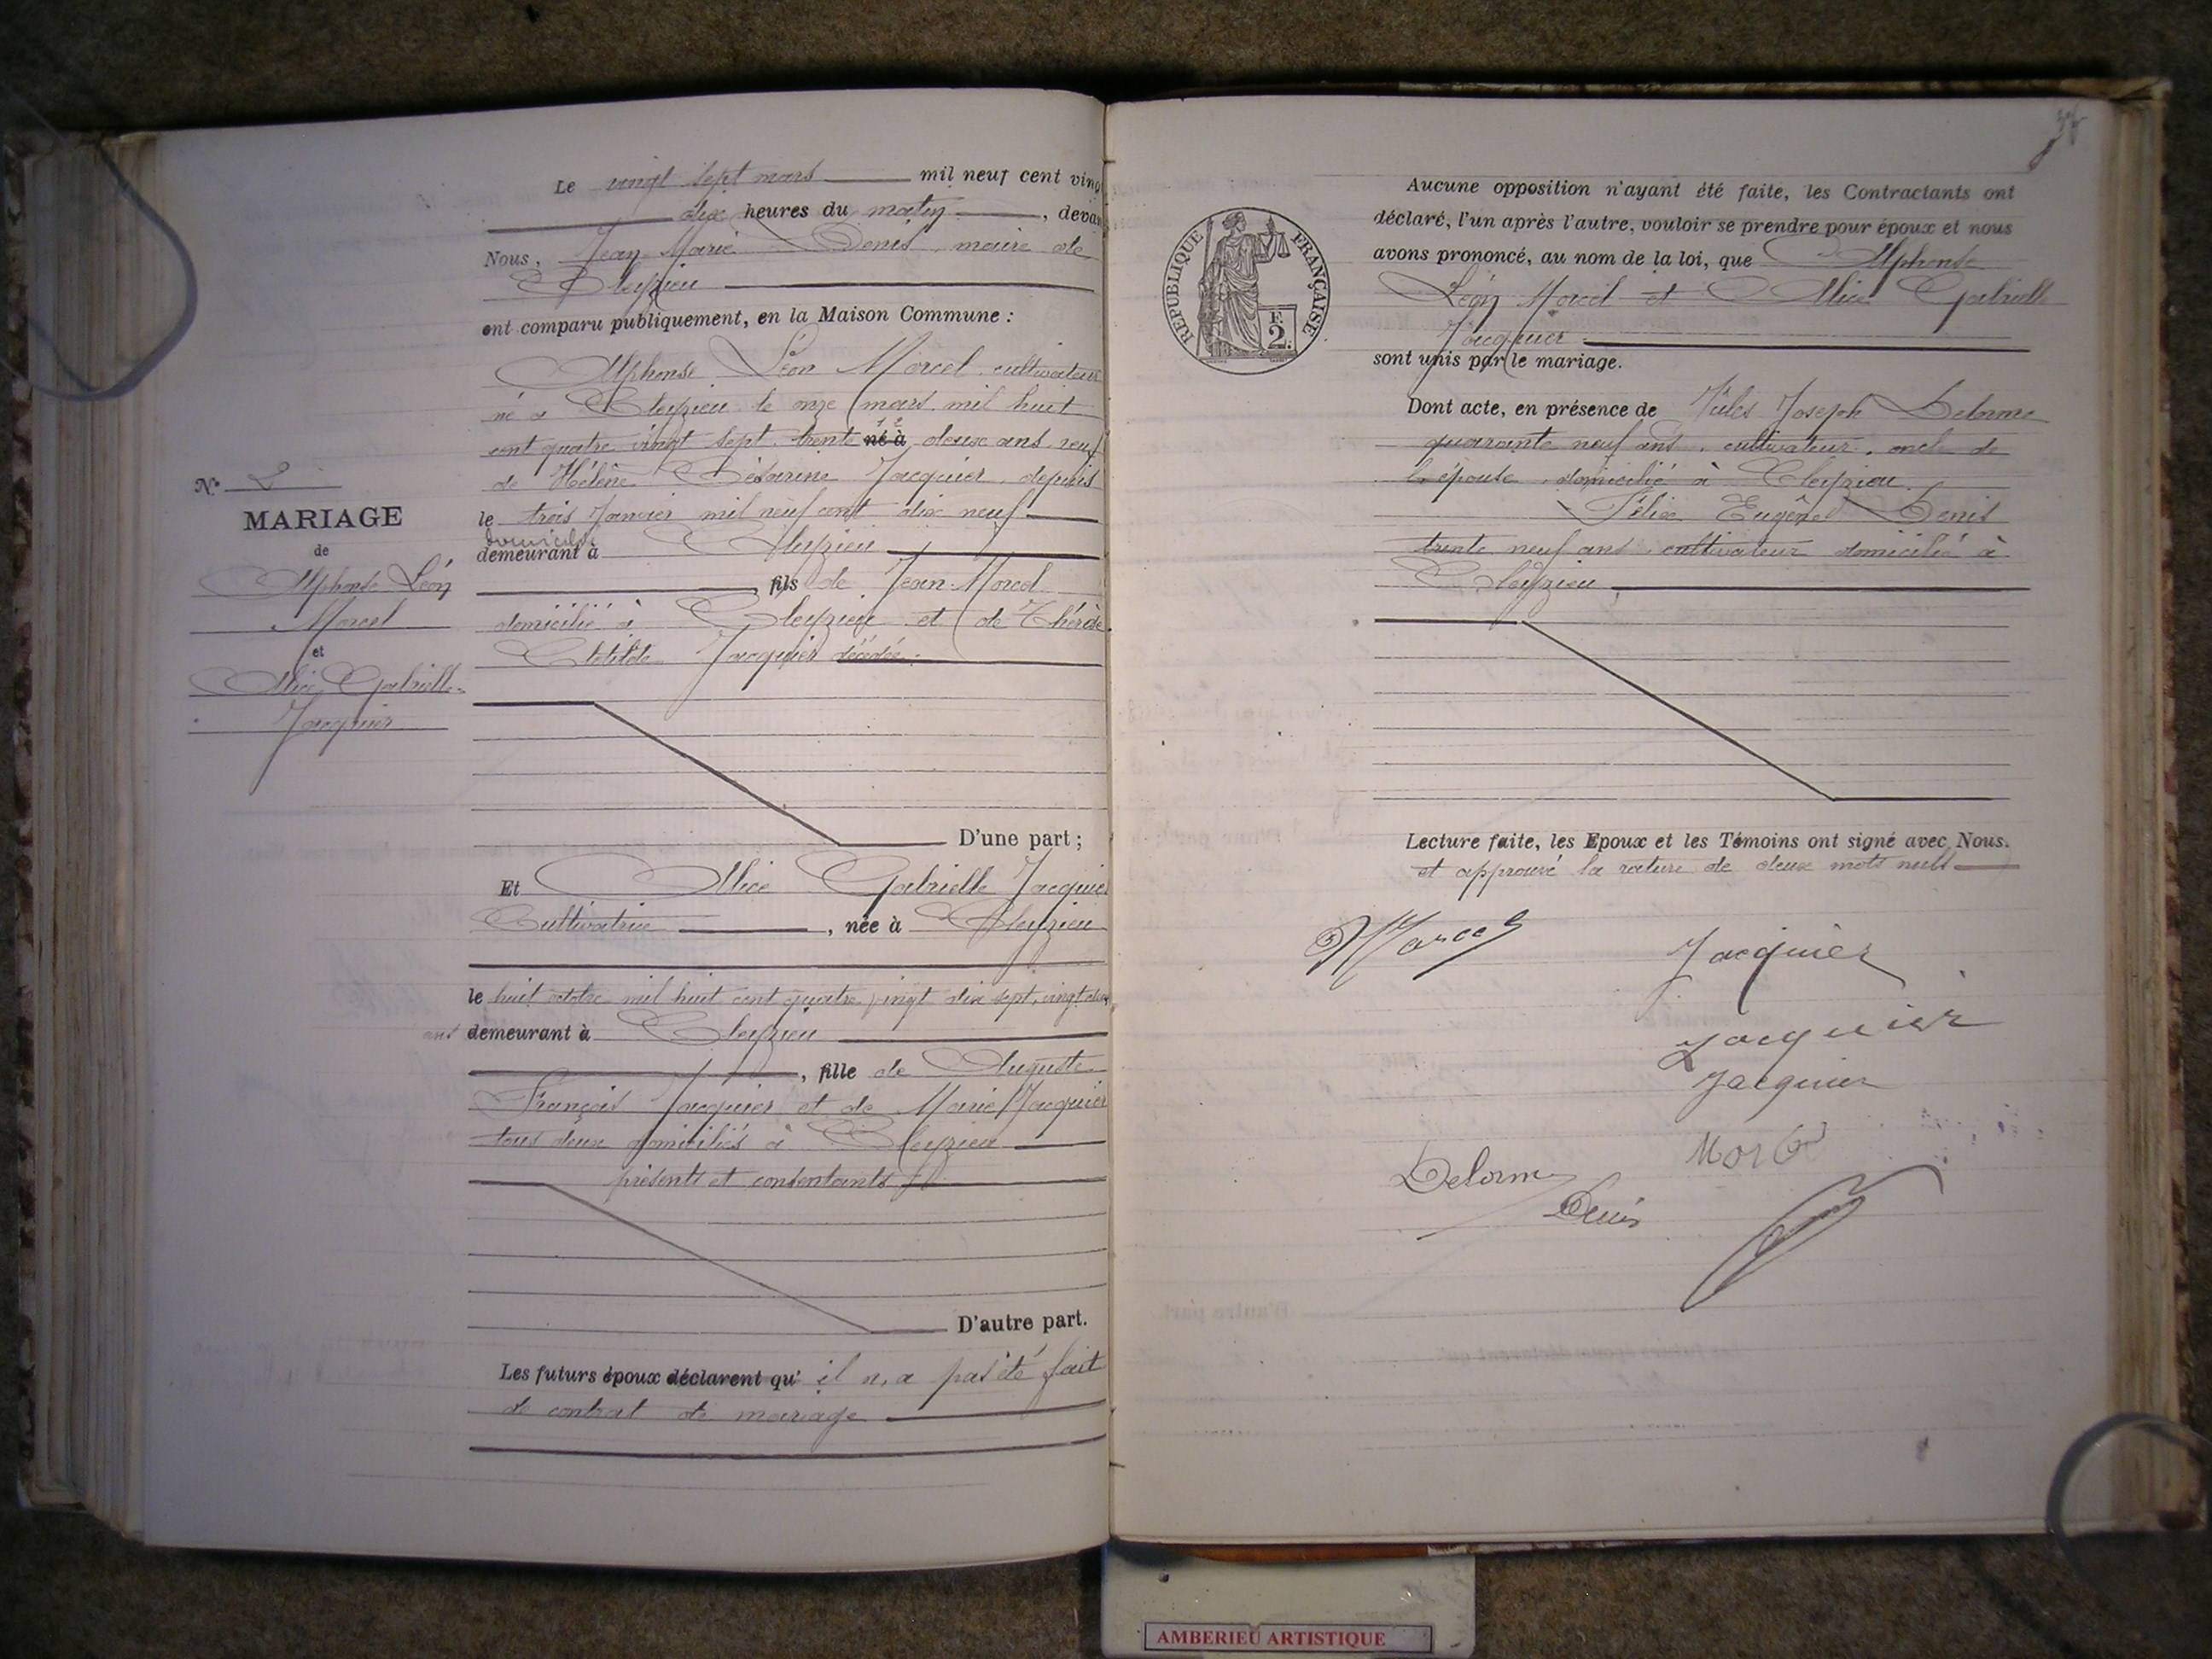 Le vingt sept mars mil neuf cent ving
dix heures du matin, devan
Nous, Jean Marie Denis, maire de
Cleyzieu
ont comparu publiquement, en la Maison Commune :
Alphonse Léon Morcel, cultivateur
né à Cleyzieu le onze mars mil huit
cent quatre vingt sept, trente né à deux ans, veuf
de Hélène Césarine Jacquier, depuis
le trois Janvier mil neuf cent dix neuf
domicilié
demeurant à Cleyzieu
fils de Jean Morcel
domicilié à Cleyzieu et de Thérèse
Clotilde Jacquier décédée.
N° 2
MARIAGE
de
Alphonse Léon
Morcel
et
Alice Gabrielle
Jacquier
D'une part ;
Et Alice Gabrielle Jacquier
Cultivatrice, née à Cleyzieu
le huit octobre mil huit cent quatre vingt dix sept, vingt deux
ans demeurant à Cleyzieu
, fille de Auguste
François Jacquier et de Marie Jacquier
tous deux domiciliés à Cleyzieu
présents et consentants
D'autre part.
Les futurs époux déclarent qu' il n'a pas été fait
de contrat de mariage
REPUBLIQUE FRANÇAISE
F.
2.
Aucune opposition n'ayant été faite, les Contractants ont
déclaré, l'un après l'autre, vouloir se prendre pour époux et nous
avons prononcé, au nom de la loi, que Alphonse
Léon Morcel et Alice Gabrielle
Jacquier
sont unis par le mariage.
Dont acte, en présence de Jules Joseph Delorme
quarante neuf ans, cultivateur, oncle de
l'épouse, domicilié à Cleyzieu.
Félix Eugène Denis
trente neuf ans, cultivateur domicilié à
Cleyzieu
Lecture faite, les Epoux et les Témoins ont signé avec Nous.
et approuvé la rature de deux mots nuls
Morcel
Jacquier
Jacquier
Jacquier
Delorme
Denis
AMBERIEU ARTISTIQUE